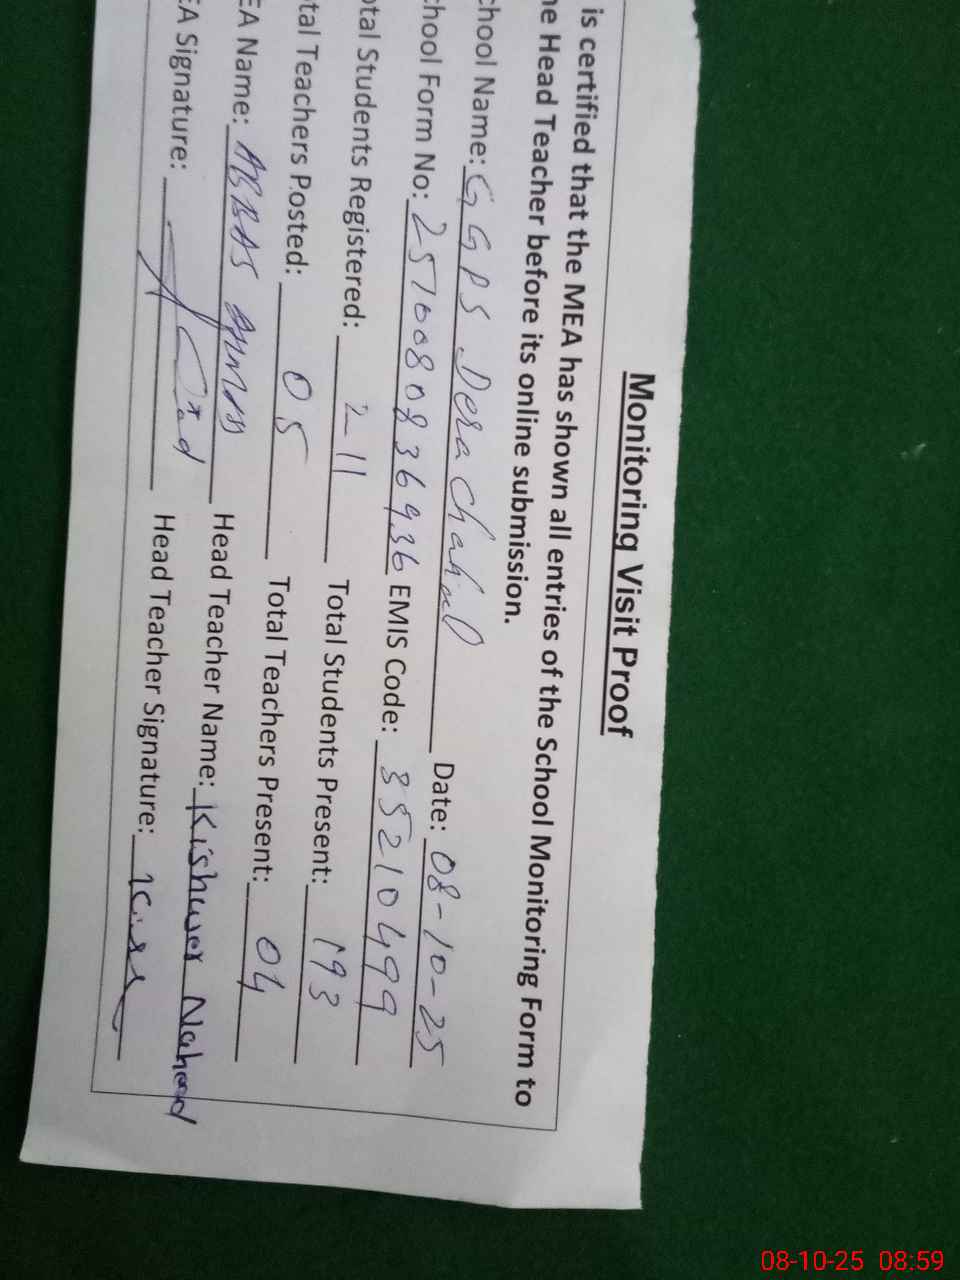 Monitoring Visit Proof
is certified that the MEA has shown all entries of the School Monitoring Form to
he Head Teacher before its online submission.
chool Name: GGPS Dera Chahal Date: 08-10-25
chool Form No: 2510080836936 EMIS Code: 35210499
otal Students Registered: 211 Total Students Present: 193
otal Teachers Posted: 05 Total Teachers Present: 04
EA Name: ABBAS Head Teacher Name: Kishwer Naheed
EA Signature: Head Teacher Signature:
08-10-25 08:59